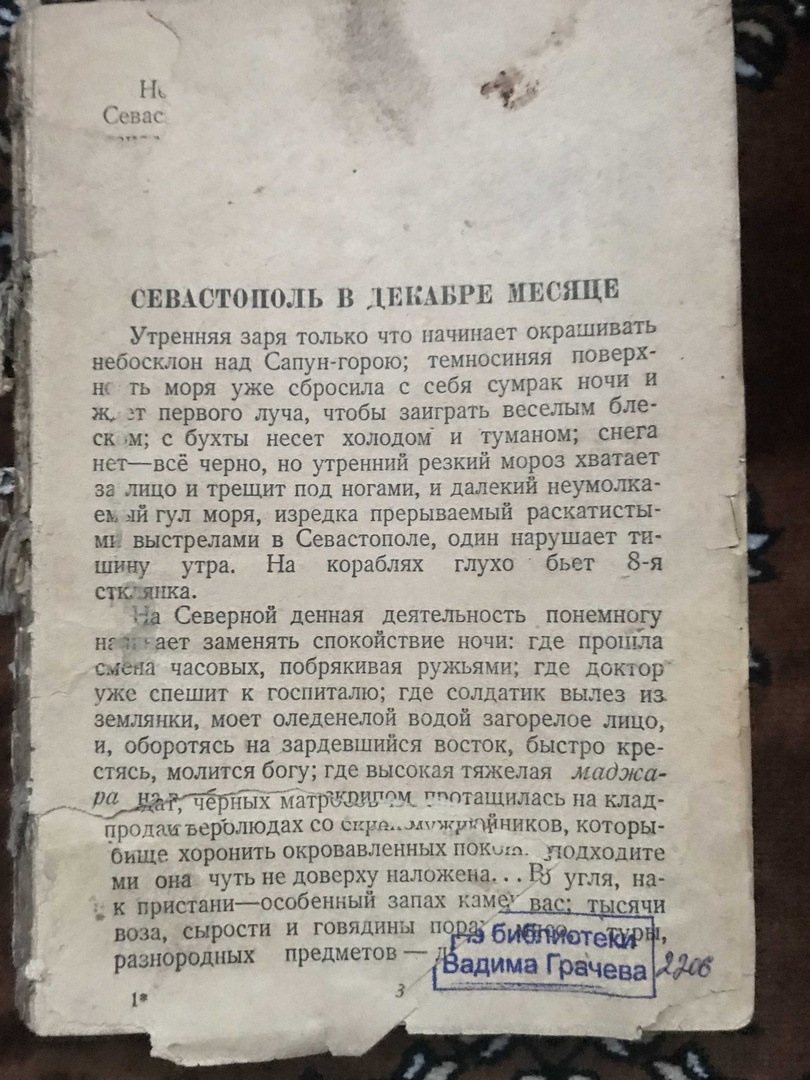 Севас
СЕВАСТОПОЛЬ В ДЕКАБРЕ МЕСЯЦЕ
Утренняя заря только что начинает окрашивать
небосклон над Сапун-горою; темносиняя поверх-
ть моря уже сбросила с себя сумрак ночи и
первого луча, чтобы заиграть веселым бле-
с бухты несет холодом и туманом; снега
нет—всё черно, но утренний резкий мороз хватает
за лицо и трещит под ногами, и далекий неумолка-
гул моря, изредка прерываемый раскатисты-
выстрелами в Севастополе, один нарушает ти-
шину утра. На кораблях глухо бьет 8-я
стклянка.
На Северной денная деятельность понемногу
заменять спокойствие ночи: где прошла
смена часовых, побрякивая ружьями; где доктор
уже спешит к госпиталю; где солдатик вылез из
землянки, моет оледенелой водой загорелое лицо,
и, оборотясь на зардевшийся восток, быстро кре-
стясь, молится богу; где высокая тяжелая маджа-
ра черных протащилась на клад-
со которы-
бище хоронить окровавленных подходите
ми она чуть не доверху наложена... угля, на-
к пристани—особенный запах вас; тысячи
воза, сырости и говядины
разнородных предметов —
Из библиотеки
Вадима Грачева 2206
1* 3